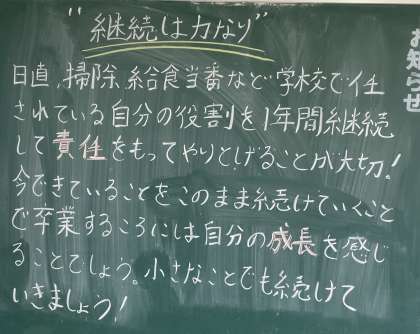 "継続は力なり"
日直、掃除、給食当番など学校で任
されている自分の役割を1年間継続
して責任をもってやりとげることが大切!
今できていることをこのまま続けていくこと
で卒業するころには自分の成長を感じ
ることでしょう。小さなことでも続けて
いきましょう!
お知らせ